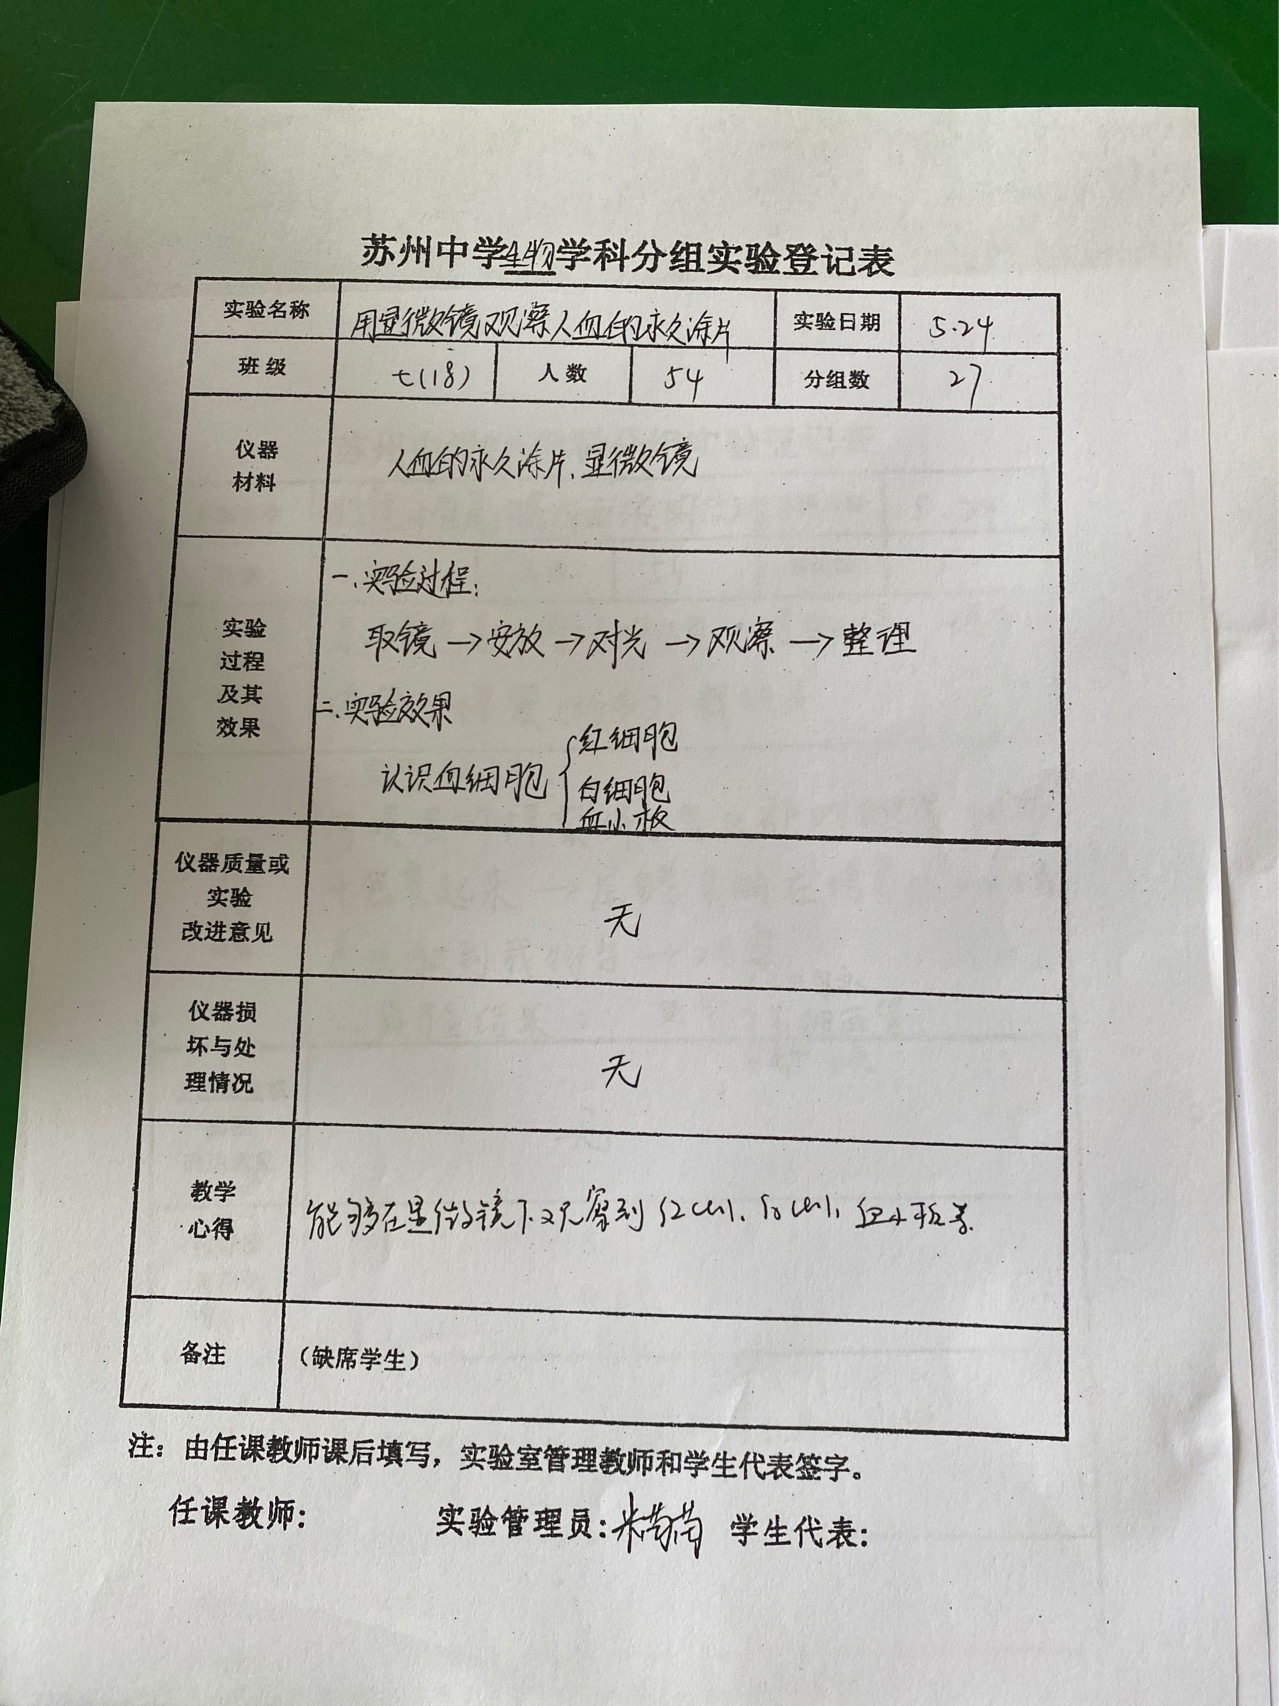 苏州中学生物学科分组实验登记表
实验名称 用显微镜观察人血的永久涂片 实验日期 5.24
班级 七(18) 人数 54 分组数 27
仪器
材料
人血的永久涂片、显微镜
实验
过程
及其
效果
一.实验过程:
取镜→安放→对光→观察→整理
二.实验效果
认识血细胞{红细胞
白细胞
血小板
仪器质量或
实验
改进意见
无
仪器损
坏与处
理情况
无
教学
心得
能够在显微镜下观察到红cell、白cell、血小板等.
备注 (缺席学生)
注：由任课教师课后填写，实验室管理教师和学生代表签字。
任课教师: 实验管理员: 学生代表: